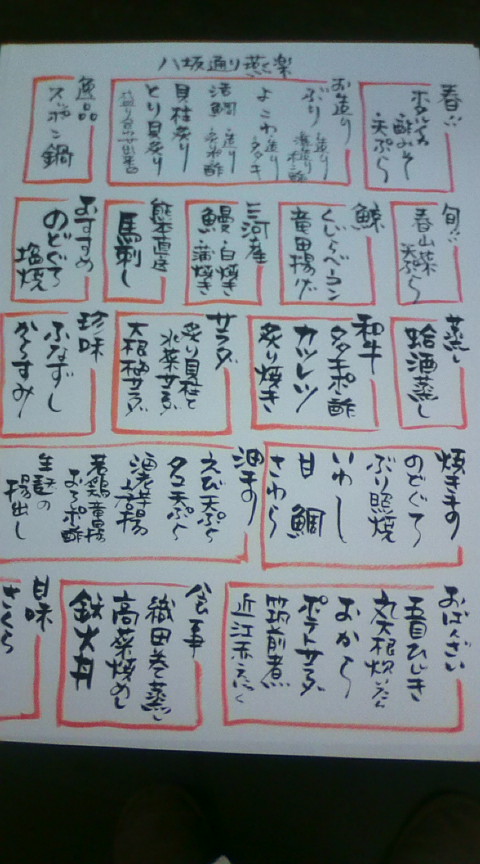 八坂通り燕楽
春!!
ホタルイカ
酢みそ
天ぷら
お造り
ぶり 造り
よこわ 造り
タタキ
活鯛 造り
貝柱炙り
とり貝炙り
逸品
スッポン鍋
旬!!
春山菜
天ぷら
鯨
くじらベーコン
竜田揚げ
三河産
鰻 白焼き
蒲焼き
熊本直送
馬刺し
おすすめ
のどぐろ
塩焼
蒸し
蛤酒蒸し
和牛
タタキポン酢
カツレツ
炙り焼き
サラダ
炙り貝柱と
水菜サラダ
大根梅サラダ
珍味
ふなずし
からすみ
焼きもの
のどぐろ
ぶり照焼
いわし
甘鯛
さわら
油もの
えび天ぷら
タコ天ぷら
若鶏竜田揚
おろしポン酢
生麩の
揚出し
おばんざい
五目ひじき
丸大根炊いたん
おから
ポテトサラダ
筑前煮
近江赤こんにゃく
食事
織田巻蒸し
高菜焼めし
鉄火丼
甘味
さくら